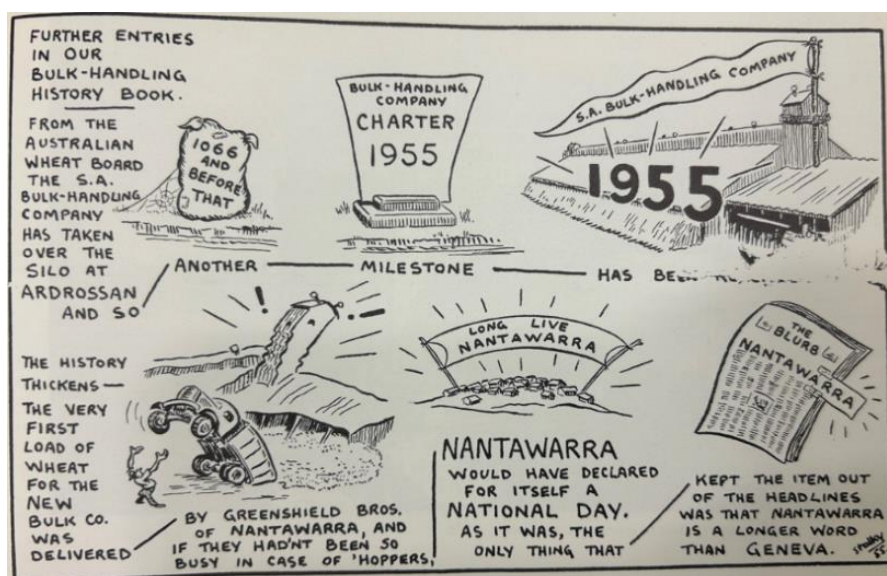 FURTHER ENTRIES
IN OUR
BULK-HANDLING
HISTORY BOOK.
FROM THE
AUSTRALIAN
WHEAT BOARD
THE S.A.
BULK-HANDLING
COMPANY
HAS TAKEN
OVER THE
SILO AT
ARDROSSAN
AND SO
1066
AND
BEFORE
THAT
BULK-HANDLING
COMPANY
CHARTER
1955
S.A. BULK-HANDLING COMPANY
1955
ANOTHER — MILESTONE — HAS BEEN
THE HISTORY
THICKENS—
THE VERY
FIRST
LOAD OF
WHEAT
FOR THE
NEW
BULK CO.
WAS
DELIVERED
! !
BY GREENSHIELD BROS.
OF NANTAWARRA, AND
IF THEY HAD'NT BEEN SO
BUSY IN CASE OF 'HOPPERS,
LONG LIVE
NANTAWARRA
NANTAWARRA
WOULD HAVE DECLARED
FOR ITSELF A
NATIONAL DAY.
AS IT WAS, THE
ONLY THING THAT
THE
BLURB
NANTAWARRA
KEPT THE ITEM OUT
OF THE HEADLINES
WAS THAT NANTAWARRA
IS A LONGER WORD
THAN GENEVA.
55